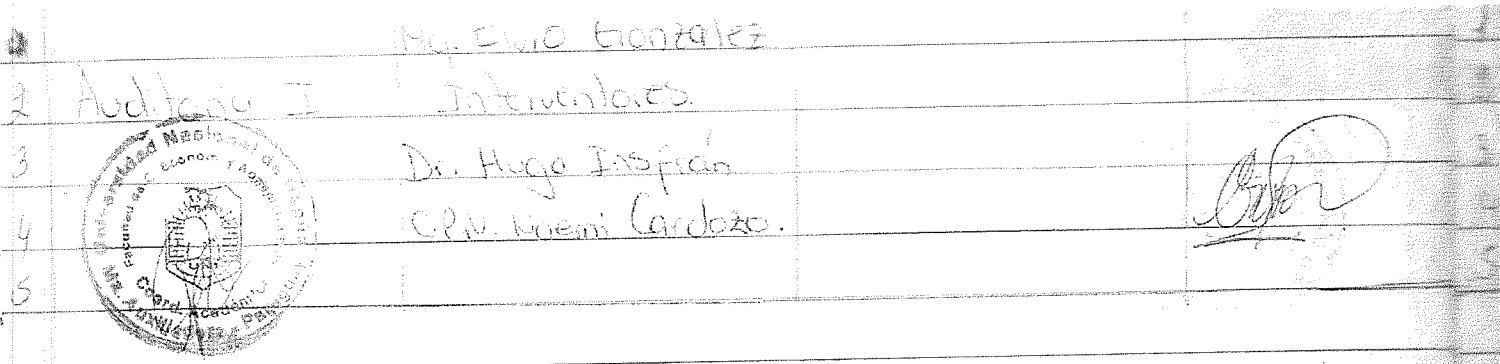 Mg. Elvio González
2 Auditoria I Interventores.
3 Dr. Hugo Insfrán
4 C.P.N. Noemi Cardozo.
5
Universidad Nacional de
Facultad de C. Econom. Y
Coord. Académic
Ma. Auxiliadora - Paraguay